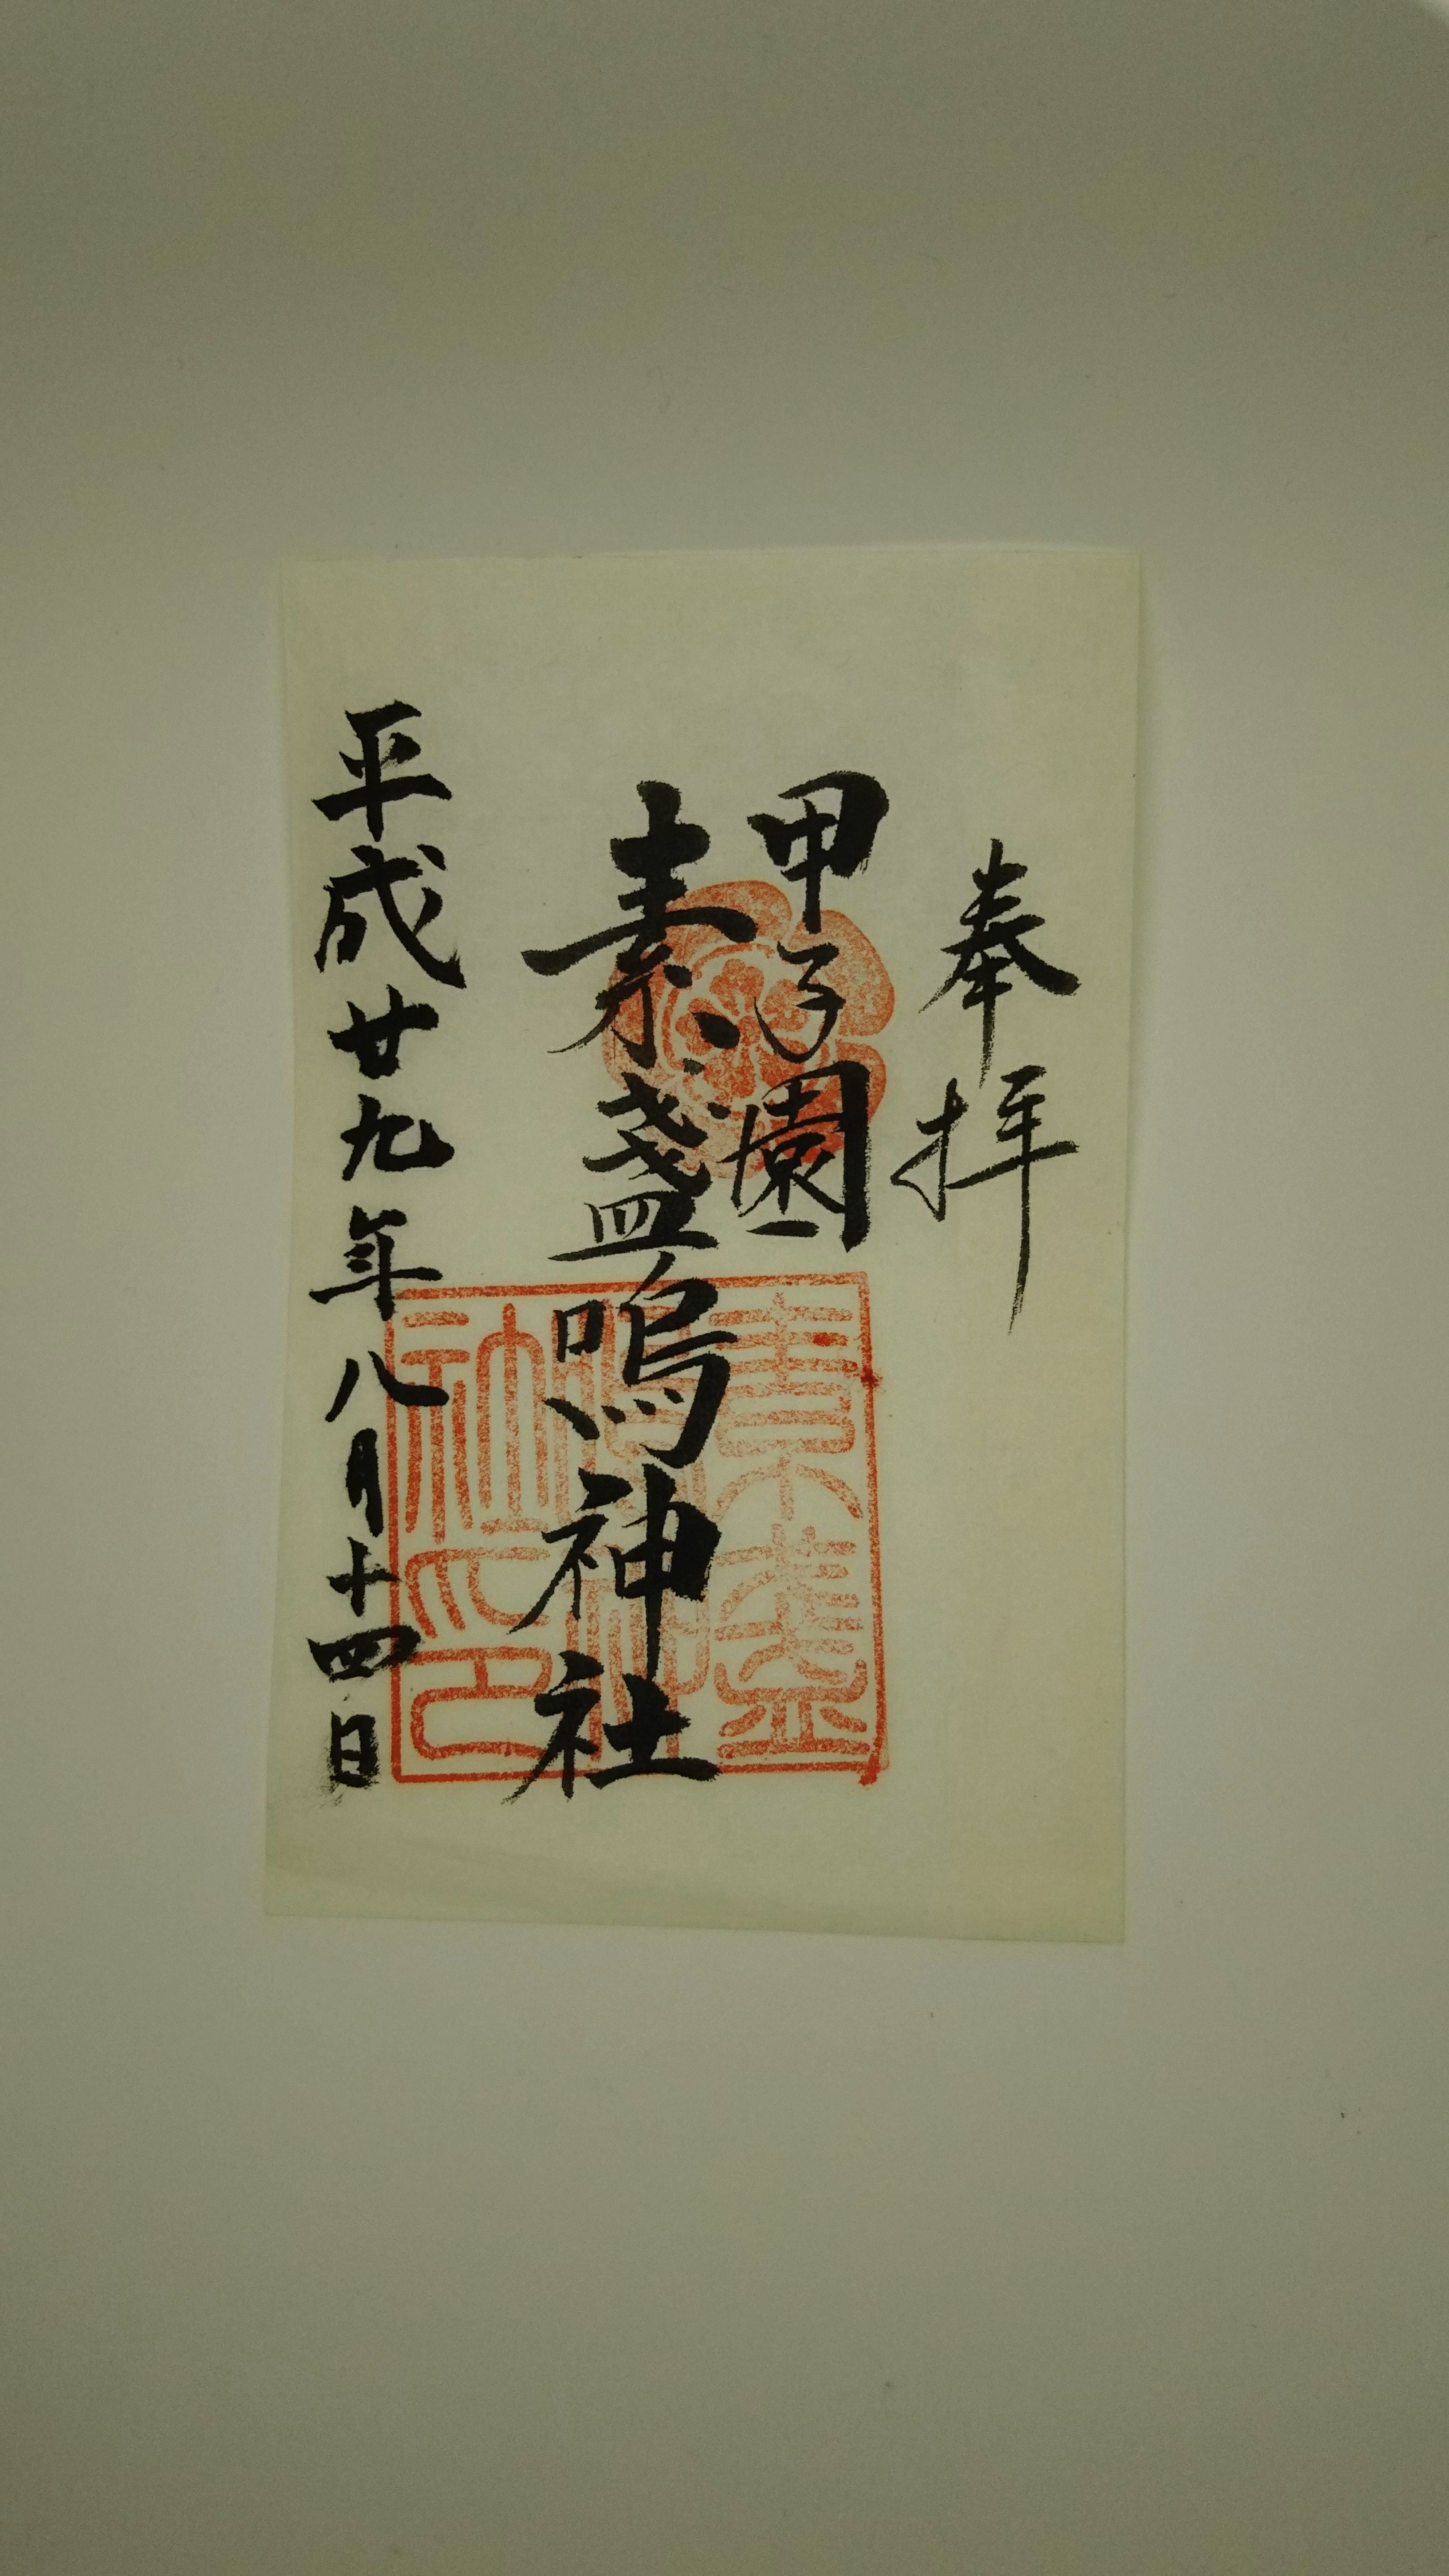 奉拝
甲子園
素盞嗚神社
平成廿九年八月十四日
素盞
嗚神
社之印